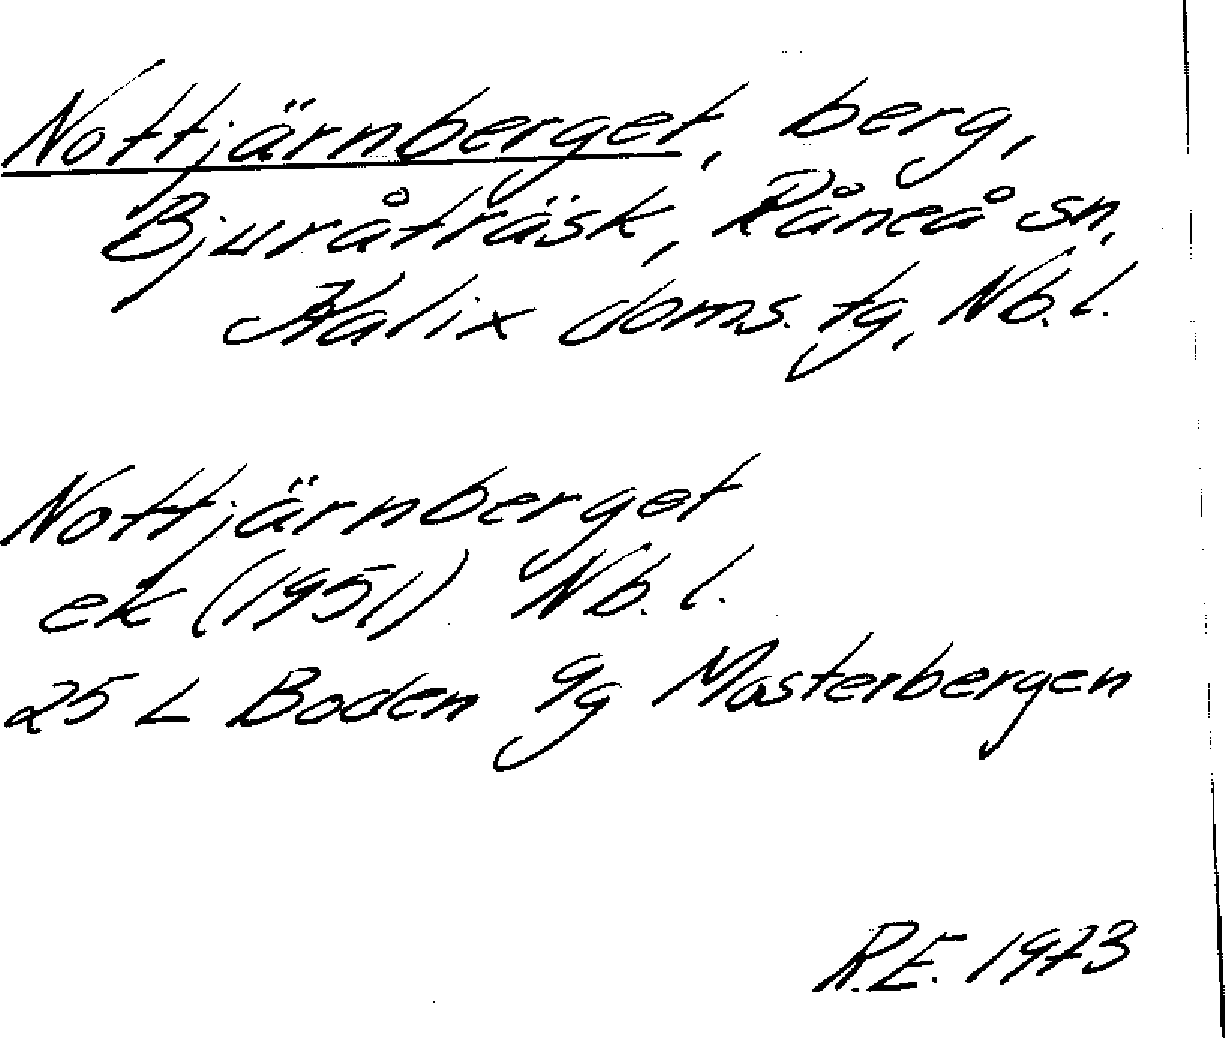 Nottjärnberget, berg,
Bjuråträsk, Råneå sn,
Kalix doms. tg, Nb. l.
Nottjärnberget
ek (1951) Nb. l.
25 L Boden 9g Mosterbergen
R.E. 1973